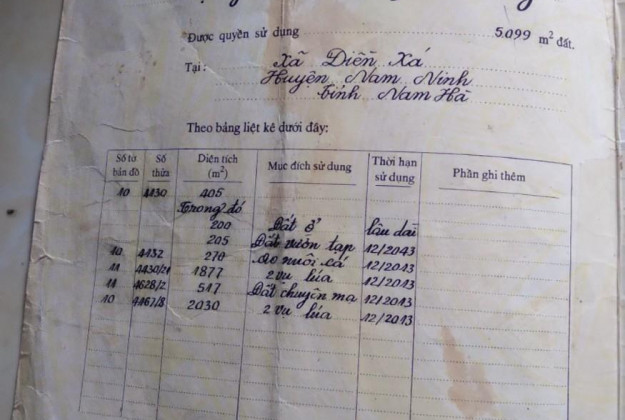 Được quyền sử dụng 5.099 m² đất.
Tại: Xã Điền Xá
Huyện Nam Ninh
tỉnh Nam Hà
Theo bảng liệt kê dưới đây:
Số tờ bản đồ Số thửa Diện tích (m²) Mục đích sử dụng Thời hạn sử dụng Phần ghi thêm
10 1130 405
Trong đó
200 Đất ở lâu dài
205 Đất vườn tạp 12/2043
10 1132 270 Ao nuôi cá 12/2013
11 1430/21 1877 2 vụ lúa 12/2013
11 1628/2 517 Đất chuyên mạ 12/2013
10 1167/8 2030 2 vụ lúa 12/2013